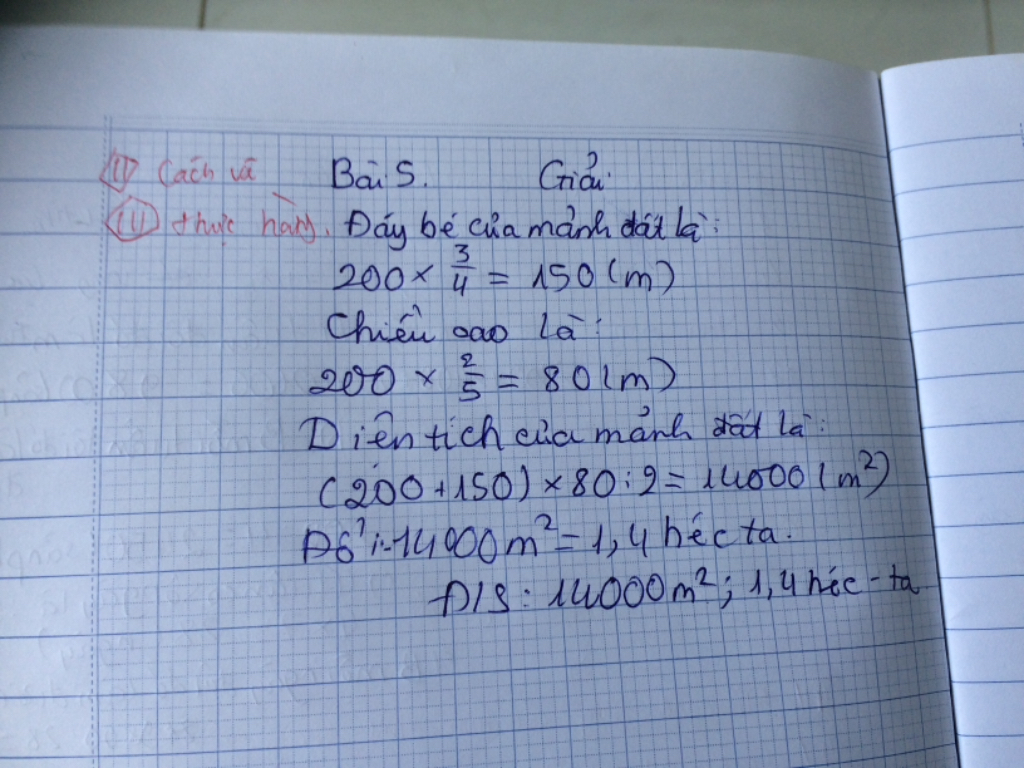 II Cách vẽ
III thực hành.
Bài 5. Giải
Đáy bé của mảnh đất là:
200 × 3/4 = 150 (m)
Chiều cao là:
200 × 2/5 = 80 (m)
Diện tích của mảnh đất là:
(200 + 150) × 80 : 2 = 14000 (m²)
Đổi: 14000m² = 1,4 héc ta.
Đ/S: 14000m²; 1,4 héc-ta